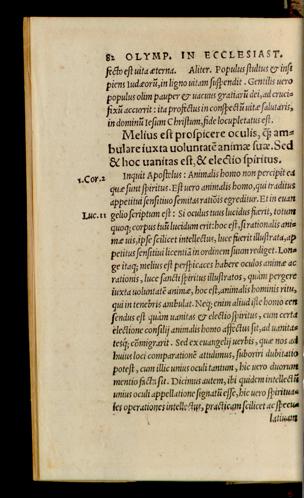 82 OLYMP. IN ECCLESIAST.
fecto est vita æterna. Aliter. Populus stultus & insi
piens Iudæorũ, in ligno uitam suspendit. Gentilis uero
populus olim pauper & uacuus gratiarũ dei, ad crucifi
fixũ accurrit: ita profectus in conspectũ uitæ salutaris,
in dominũ Iesum Christum, fide locupletatus est.
Melius est prospicere oculis, q̃ am-
bulare iuxta uoluntatẽ animæ suæ. Sed
& hoc uanitas est, & electio spiritus.
1.Cor.2 Inquit Apostolus: Animalis homo non percipit ea
quæ sunt spiritus. Est uero animalis homo, qui traditus
appetitui sensitiuo semitas rationis egreditur. Et in euan
Luc.11 gelio scriptum est: Si oculus tuus lucidus fuerit, totum
quoq; corpus tuũ lucidum erit: hoc est, si rationalis ani-
mæ uis, ipse scilicet intellectus, luce fuerit illustrata, ap
petitus sensitiui licentiã in ordinem suum rediget. Lon-
ge itaq; melius est perspicaces habere oculos animæ ac
rationis, luce sancti spiritus illustratos, quàm pergere
iuxta uoluntatẽ animæ, hoc est, animalis hominis ritu,
qui in tenebris ambulat. Neq; enim aliud iste homo cen
sendus est quàm uanitas & electio spiritus, cum certa
electione consilij animalis homo affectus sit, ad uanita-
tesq; cõmigrarit. Sed ex euangelij uerbis, quæ nos ad
huius loci comparationẽ attulimus, suboriri dubitatio
potest, cum illic unius oculi tantum, hic uero duorum
mentio facta sit. Dicimus autem, ibi quidem intellectũ
unius oculi appellatione signatũ esse, hic uero spiritua-
les operationes intellectus, practicam scilicet ac specu-
latiuam